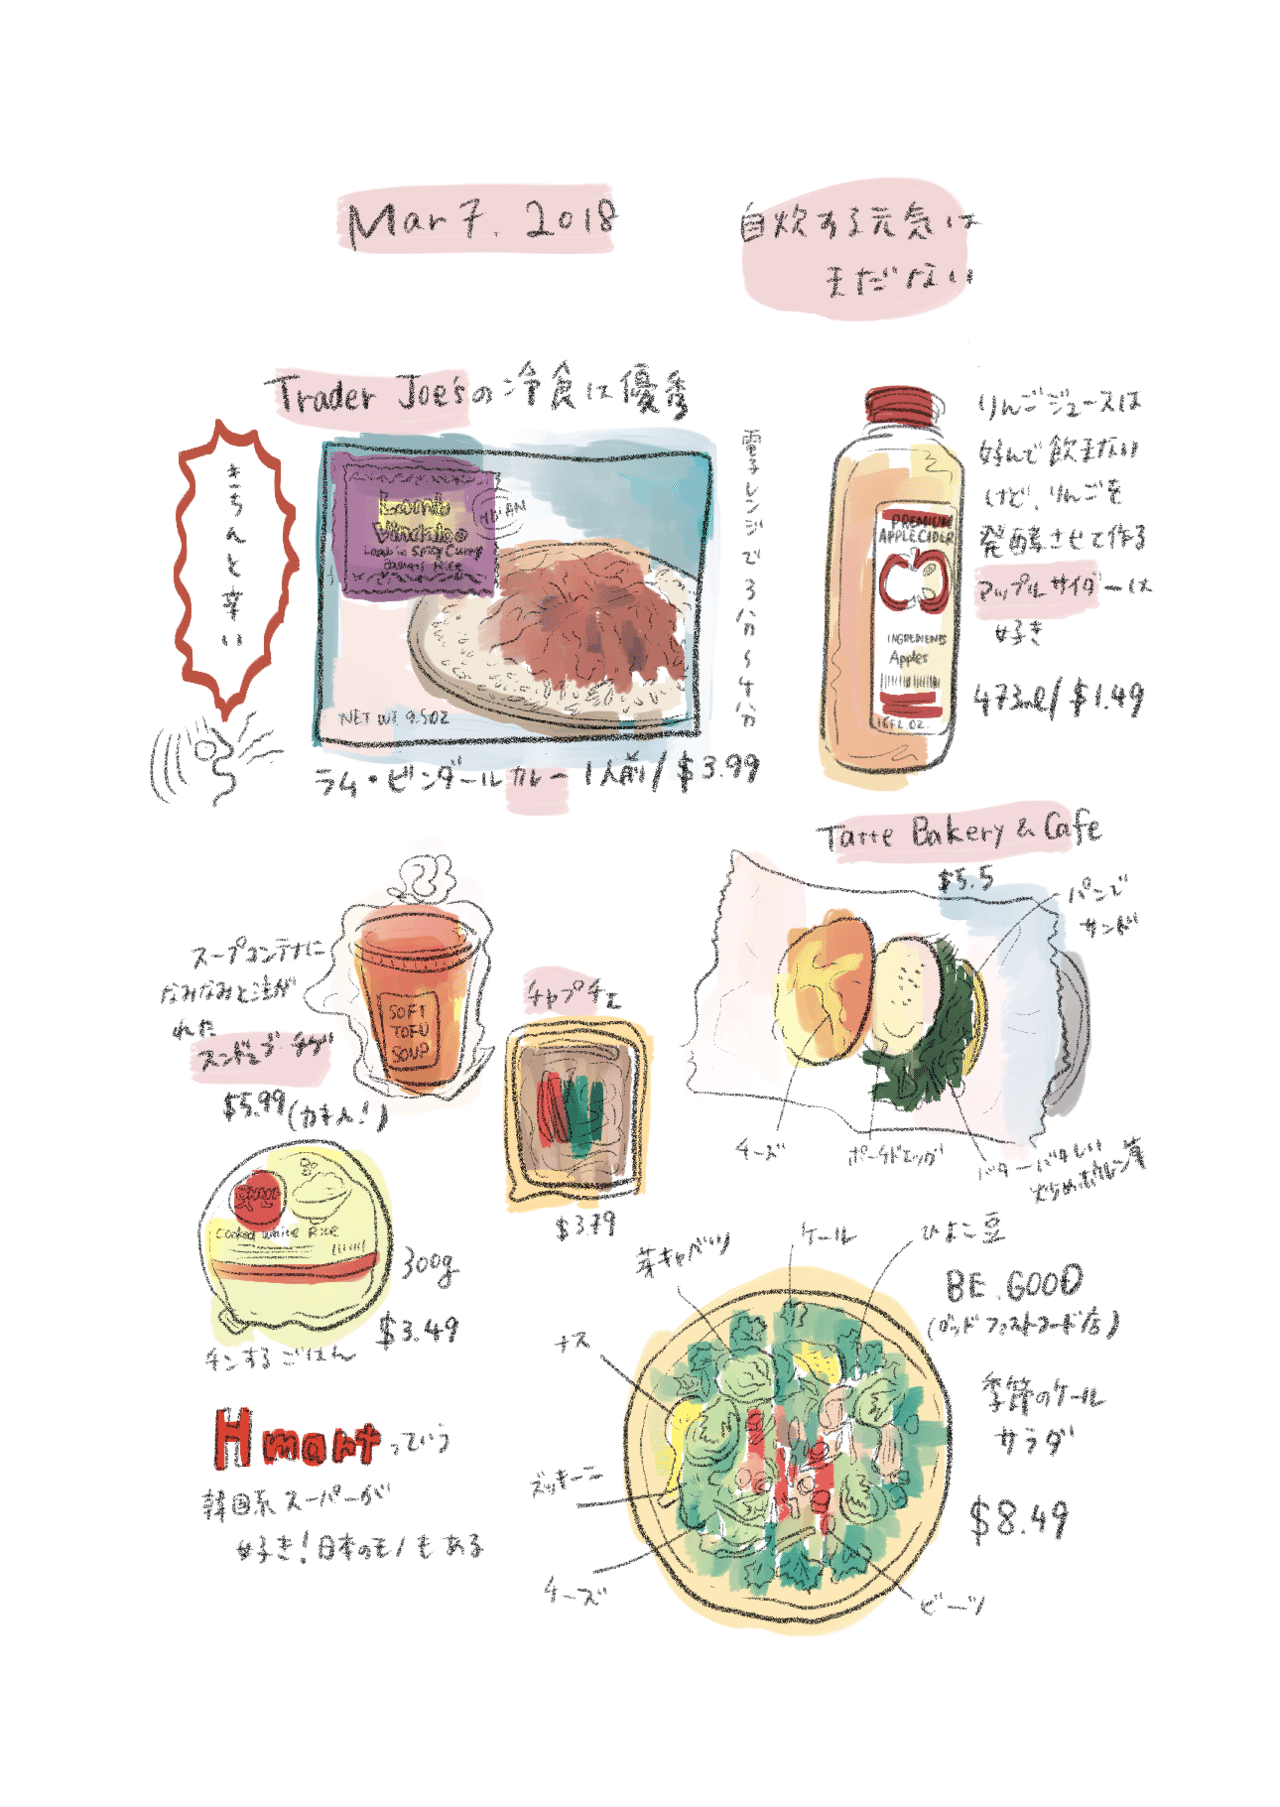 Mar 7. 2018
自炊する元気は
まだない
Trader Joe'sの冷食は優秀
きちんと辛い
Lamb
Vindaloo
Lamb in Spicy Curry
Basmati Rice
INDIAN
NET WT 9.5OZ
電子レンジで3分から4分
ラム・ビンダールカレー 1人前/$3.99
PREMIUM
APPLE CIDER
INGREDIENTS
Apples
16FL OZ.
りんごジュースは
好んで飲まない
けど、りんごを
発酵させて作る
アップルサイダーは
好き
473ml/$1.49
Tatte Bakery & Cafe
$5.5
パンで
サンド
チーズ
ポーチドエッグ
バターバターしい
炒めホウレン草
スープコンテナに
なみなみと注が
れた
スンドゥブチゲ
$5.99(カモん!)
SOFT
TOFU
SOUP
チャプチェ
$3.79
햇반
Cooked White Rice
300g
$3.49
チンするごはん
H martっていう
韓国系スーパーが
好き!日本のモノもある
芽キャベツ
ケール
ひよこ豆
ナス
ズッキーニ
チーズ
ビーツ
BE.GOOD
(グッドファストフード店)
季節のケール
サラダ
$8.49